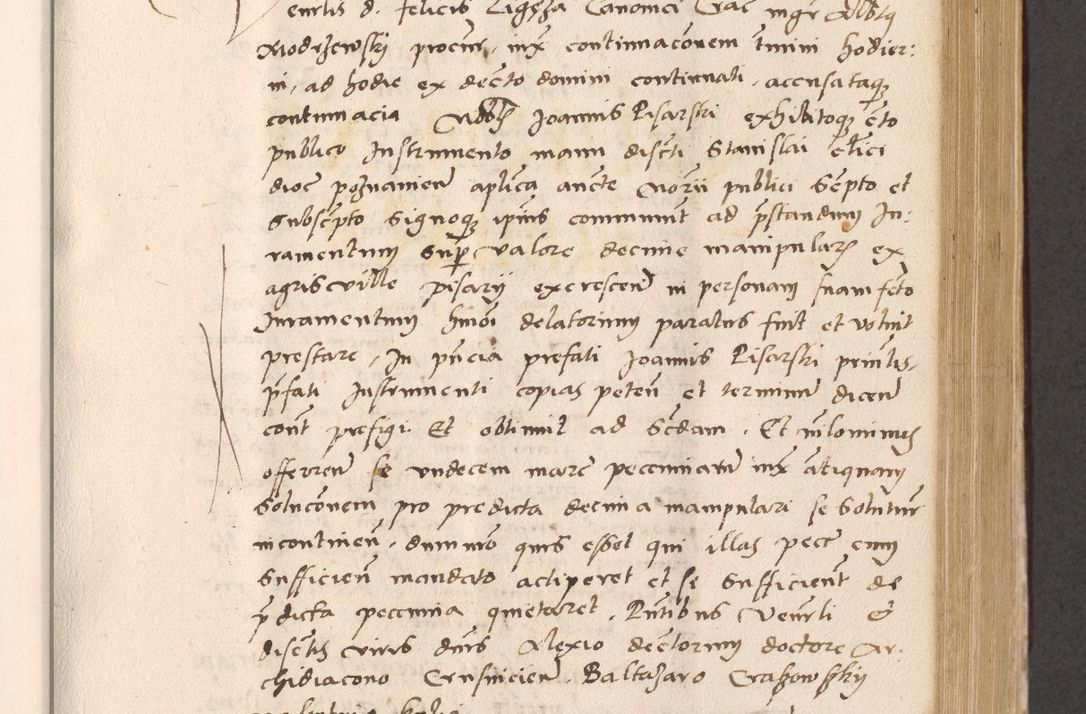 Venrlis d. Felicis Ligęza Canonici Crac mgr Albty
Modrzewski procur, inx continnaconem tmini hodier:
ni, ad hodie ex decto domini continuati, accusataqz
contumacia Nobis Joannis Pisarski exhibitoqz cto
publico Instrumento manu discti Stanislai Clici
dioc poznanien aplica aucte Norii publici Scpto et
Subscpto Signoqz ipius communit ad pstandum Ju:
ramentum Super valore decime manipularis ex
agris ville Pisarij excrescen in personam suam fcto
Juramentum hmoi delatorium paratus fuit et voluit
prestare, In pncia prefati Joannis Pisarski printis,
pfati Instrumenti copias peten et terminum dicen
cont prefigi. Et obtinuit ad Scdam. Et nilominus
offerren se undecem marc pecuniarum inx antiquam
Soluconem pro predicta decima manipulari se Soluturum
incontinen, dummo quis esset qui illas pecc cum
Sufficien mandato acciperet et se Sufficient de
pdicta peccunia quietaret. Pntibus Venrli et
disctis viris dnis Alexio dectorum doctore Ar,
chidiacono Crusuicien, Baltazaro Crakowsky